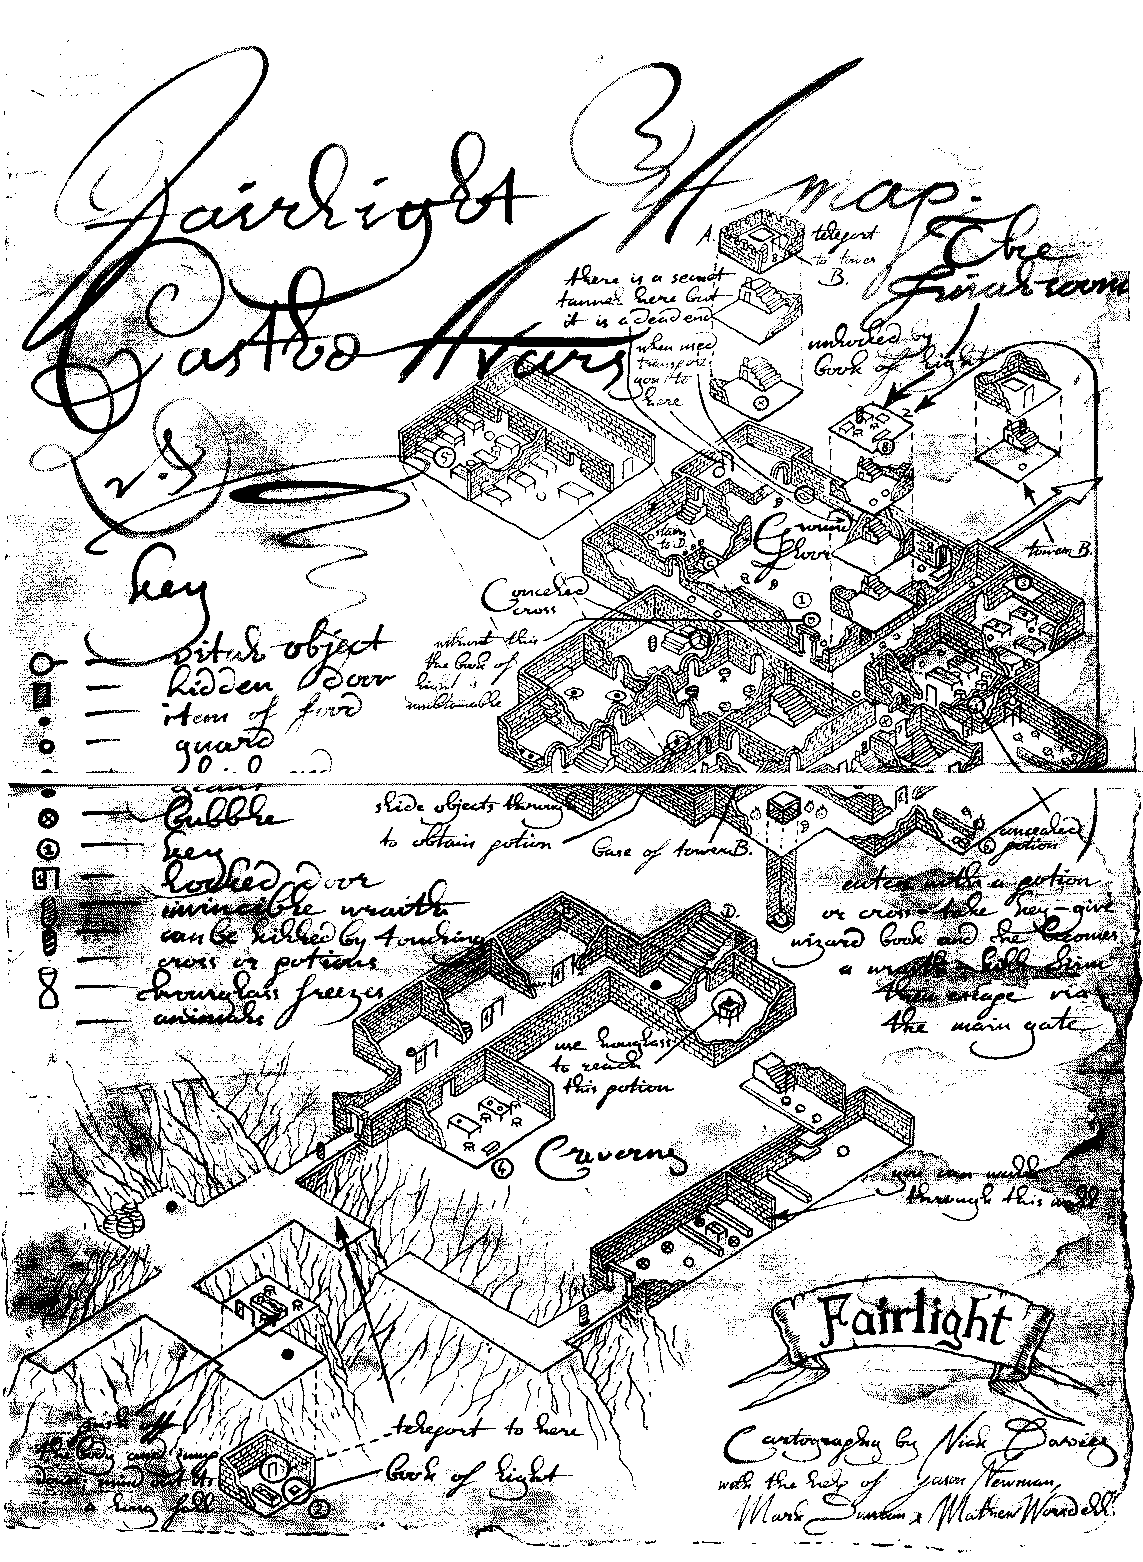 Fairlight
A map.
Castle Avars
A.
teleport
to tower
B.
The
Final room
there is a secret
tunnel here but
it is a dead end
when used
transports
you to
here
unlocked by
book of light
2.
tower B.
stairs
to D.
Ground
floor
Concealed
cross
without this
the book of
light is
unobtainable
Key
vital object
hidden door
item of food
guard
bubble
key
locked door
invincible wraith
can be killed by touching
cross or potions
hourglass freezes
animals
slide objects through
to obtain potion
base of tower B.
concealed
potion
enter with a potion
or cross - take key - give
wizard book and he becomes
a wraith - kill him
then escape via
the main gate
D.
use hourglass
to reach
this potion
Caverns
you can walk
through this wall
push off
the lid and jump
a long fall
teleport to here
book of light
Fairlight
Cartography by Nick Davies
with the help of Jason Newman,
Mark & Mathew